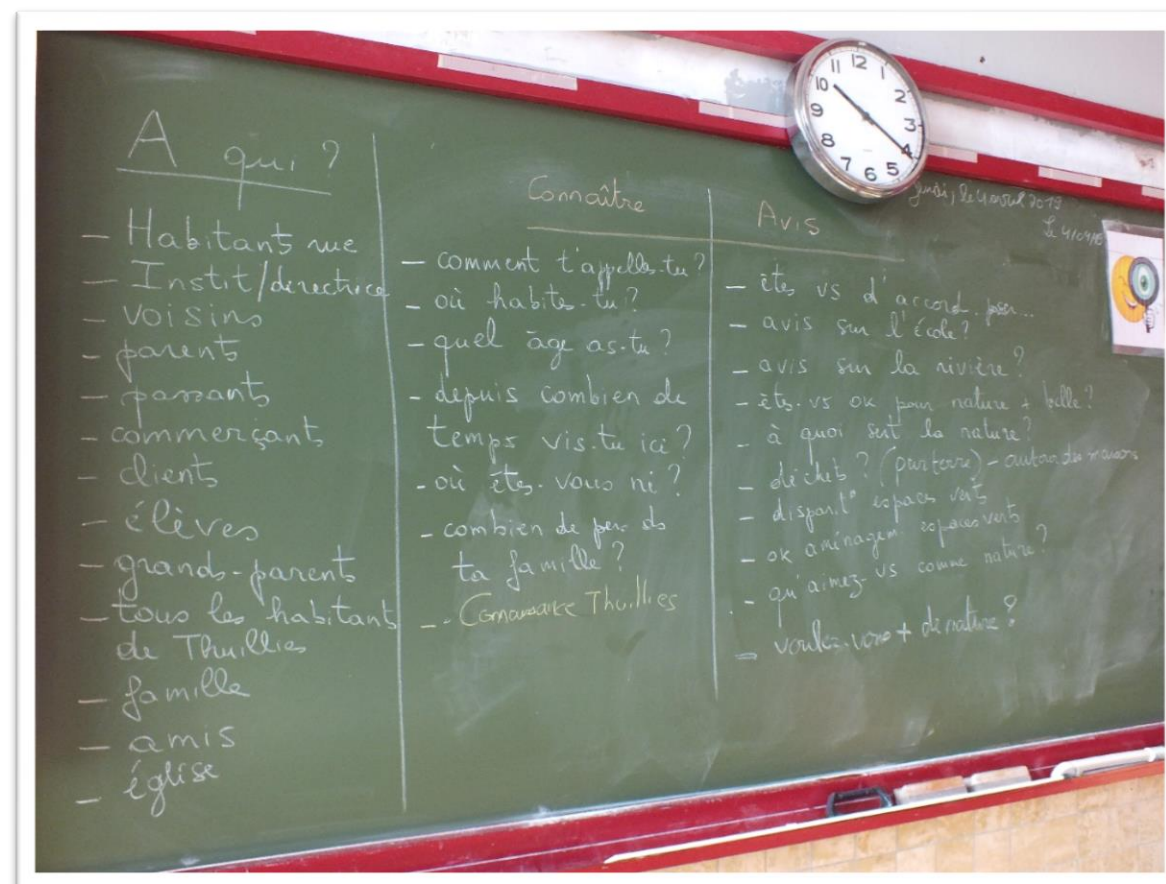 A qui ?
- Habitants rue
- Instit/directrice
- voisins
- parents
- passants
- commerçants
- clients
- élèves
- grands-parents
- tous les habitants
de Thuillies
- famille
- amis
- église
Connaître
- comment t'appelles-tu ?
- où habites-tu ?
- quel âge as-tu ?
- depuis combien de
temps vis-tu ici ?
- où êtes-vous né ?
- combien de pers ds
ta famille ?
- Thuillies
Avis
- êtes vs d'accord pour...
- avis sur l'école ?
- avis sur la rivière ?
- êtes-vs ok pour nature + belle ?
- à quoi sert la nature ?
- déchets ? (par terre) - autour des maisons
- disparit° espaces verts
- ok aménagem espaces verts
- qu'aimez-vs comme nature ?
- voulez-vous + de nature ?
jeudi, le 4 avril 2019
Le 4/04/19
12
1
2
3
4
5
6
7
8
9
10
11